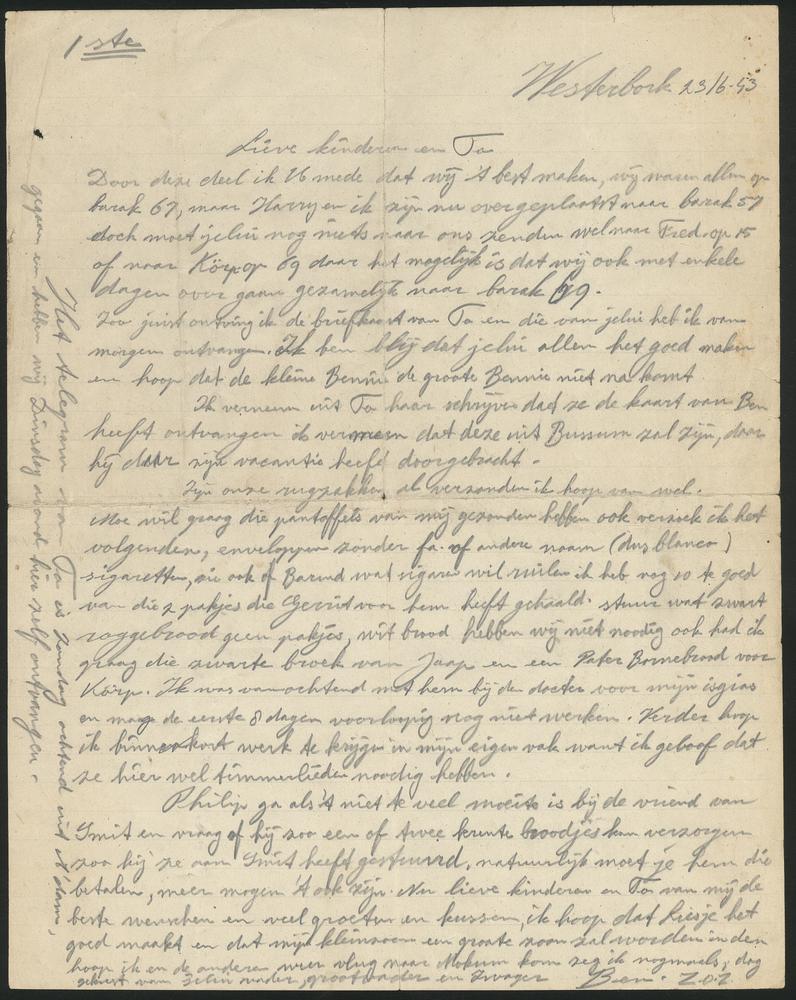 1 ste
Westerbork 23/6-43
Lieve kinderen en To
Door deze deel ik U mede dat wij 't best maken, wij waren allen op
barak 67, maar Harry en ik zijn nu overgeplaatst naar barak 57
doch moet jelui nog niets naar ons zenden wel naar Fred. op 15
of naar Körp op 69 daar het mogelijk is dat wij ook met enkele
dagen over gaan gezamelijk naar barak 69.
Zoo juist ontving ik de briefkaart van To en die van jelui heb ik van
morgen ontvangen. Ik ben blij dat jelui allen het goed maken
en hoop dat de kleine Bennie de groote Bennie niet na komt
Ik verneem uit To haar schrijven dat ze de kaart van Ben
heeft ontvangen ik vermeen dat deze uit Bussum zal zijn, daar
hij daar zijn vacantie heeft doorgebracht -
Zijn onze rugzakken al verzonden ik hoop van wel.
Moe wil graag die pantoffels van mij gezonden hebben ook verzoek ik het
volgenden, enveloppen zonder fa. of andere naam (dus blanco)
sigaretten, zie ook of Barend wat sigaren wil ruilen ik heb nog 10 te goed
van die 2 pakjes die Gerrit voor hem heeft gehaald. stuur wat zwart
roggebrood geen pakjes, wit brood hebben wij niet noodig ook had ik
graag die zwarte broek van Jaap en een Pater Bornebrood voor
Körp. Ik was van ochtend met hem bij den docter voor mijn isgias
en mag de eerste 8 dagen voorlopig nog niet werken. Verder hoop
ik binnenkort werk te krijgen in mijn eigen vak want ik geloof dat
ze hier wel timmerlieden noodig hebben.
Philip ga als 't niet te veel moeite is bij de vriend van
Smit en vraag of hij zoo een of twee krente broodjes kan verzorgen
zoo hij ze aan Smit heeft gestuurd, natuurlijk moet je hem die
betalen, meer mogen 't ook zijn. Nu lieve kinderen en To van mij de
beste wenschen en veel groeten en kussen, ik hoop dat Liesje het
goed maakt en dat mijn kleinzoon een groote zoon zal worden en den
hoop ik en de anderen weer vlug naar Mokum kom zeg ik nogmaals, dag
gekust van jelui vader, grootvader en Zwager Ben. Z.O.Z.
Het telegram van To is Zondag ochtend uit A'dam,
gegaan en hebben wij Dinsdag avond hier zelf ontvangen -